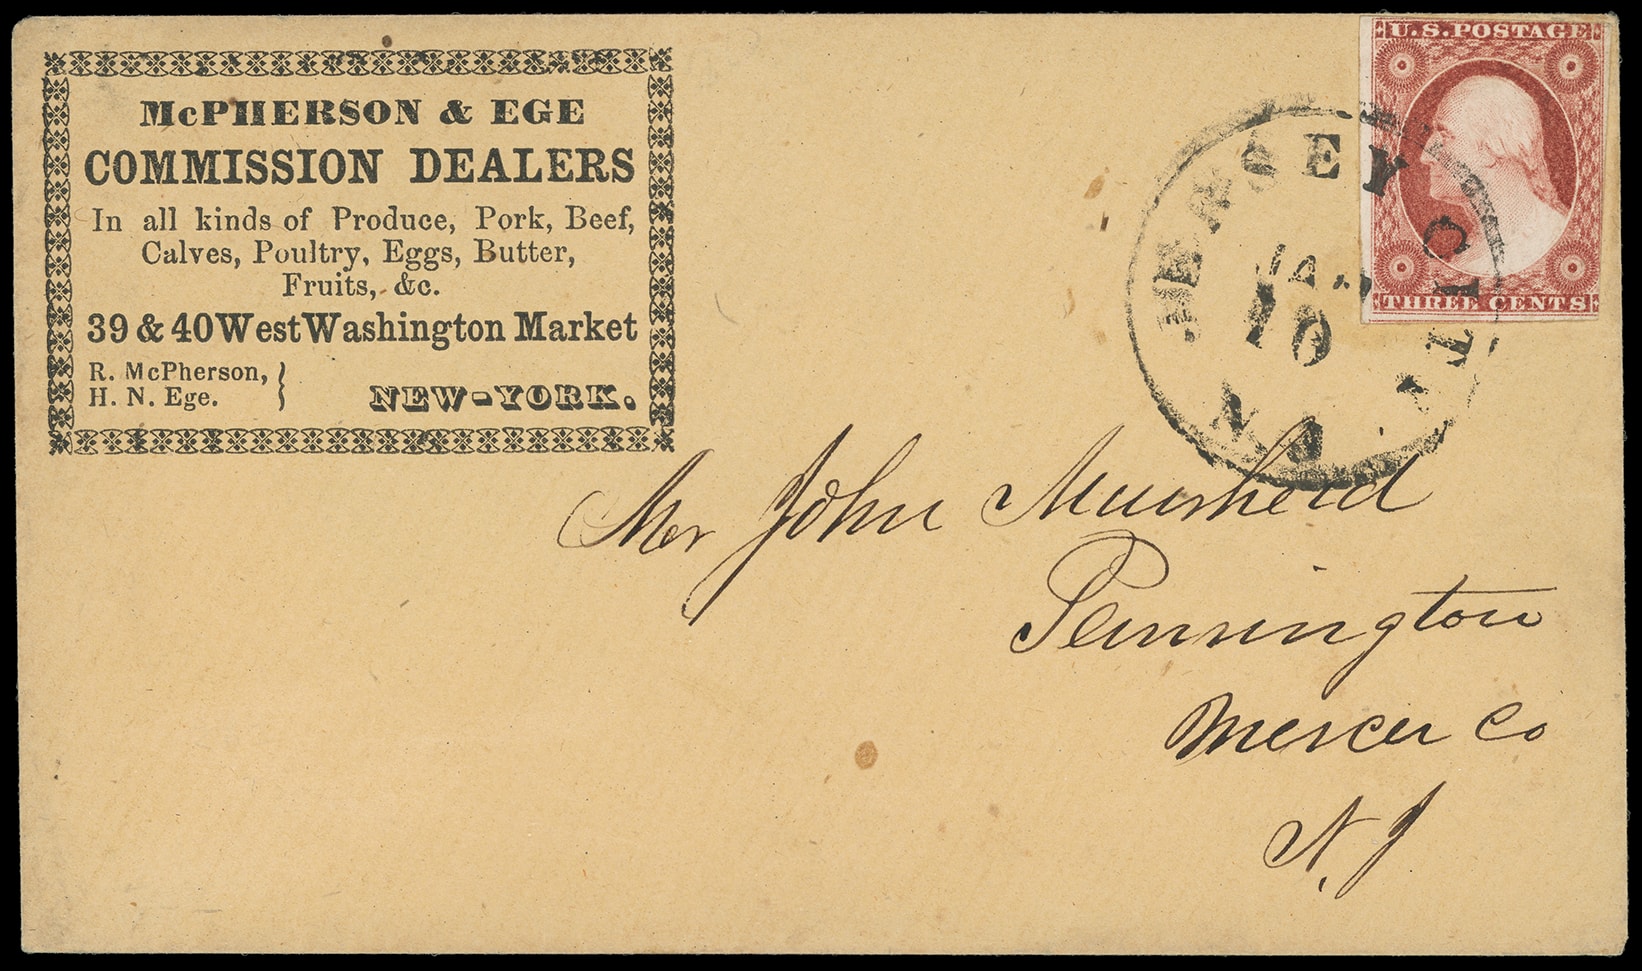 McPHERSON & EGE
COMMISSION DEALERS
In all kinds of Produce, Pork, Beef,
Calves, Poultry, Eggs, Butter,
Fruits, &c.
39 & 40 West Washington Market
R. McPherson,
H. N. Ege.
NEW-YORK.
U.S. POSTAGE
THREE CENTS
JERSEY CITY
N.J.
JAN
10
Mr John Muirheid
Pennington
Mercer Co
N. J